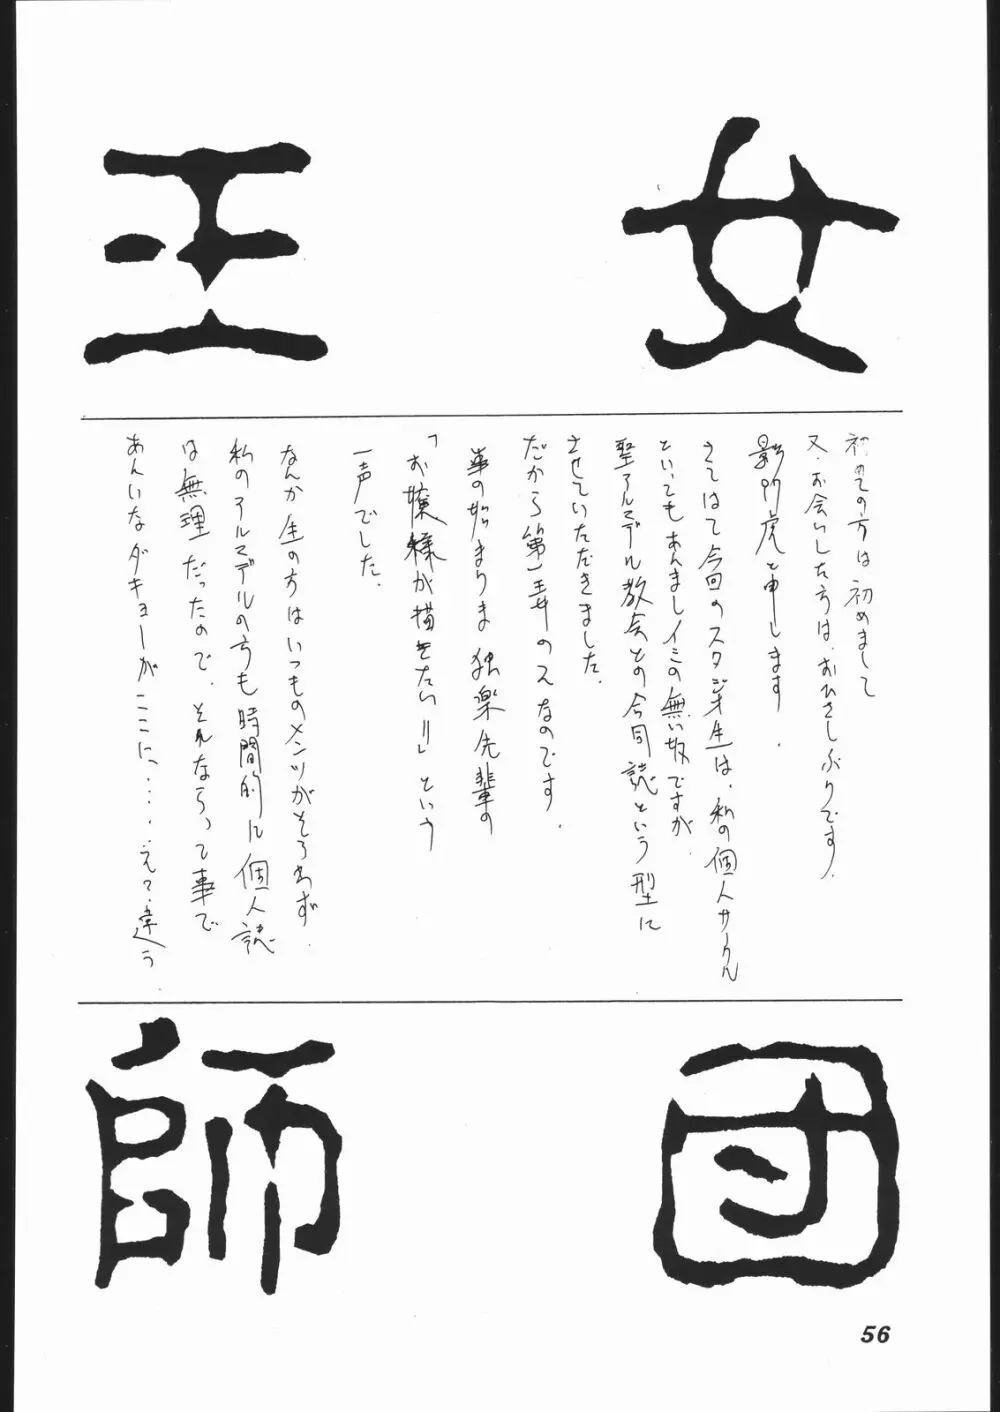 女王
初めての方は初めまして
又、お会いした方は、おひさしぶりです。
影門虎と申します.
さてはて今回のスタジオ生は、私の個人サークル
といってもあんましイミの無い奴ですが
聖アルマデル教会との合同誌という型に
させていただきました.
だから第一弄のえなのです.
事の始まりは 独楽先輩の
「お嬢様が描きたい!!」という
一声でした.
なんか生の方はいつものメンツがそろわず.
私のアルマデルの方も時間的に個人誌
は無理だったので、それならって事で
あんいなダキョーがここに・・・・、えっ、違う
師団
56